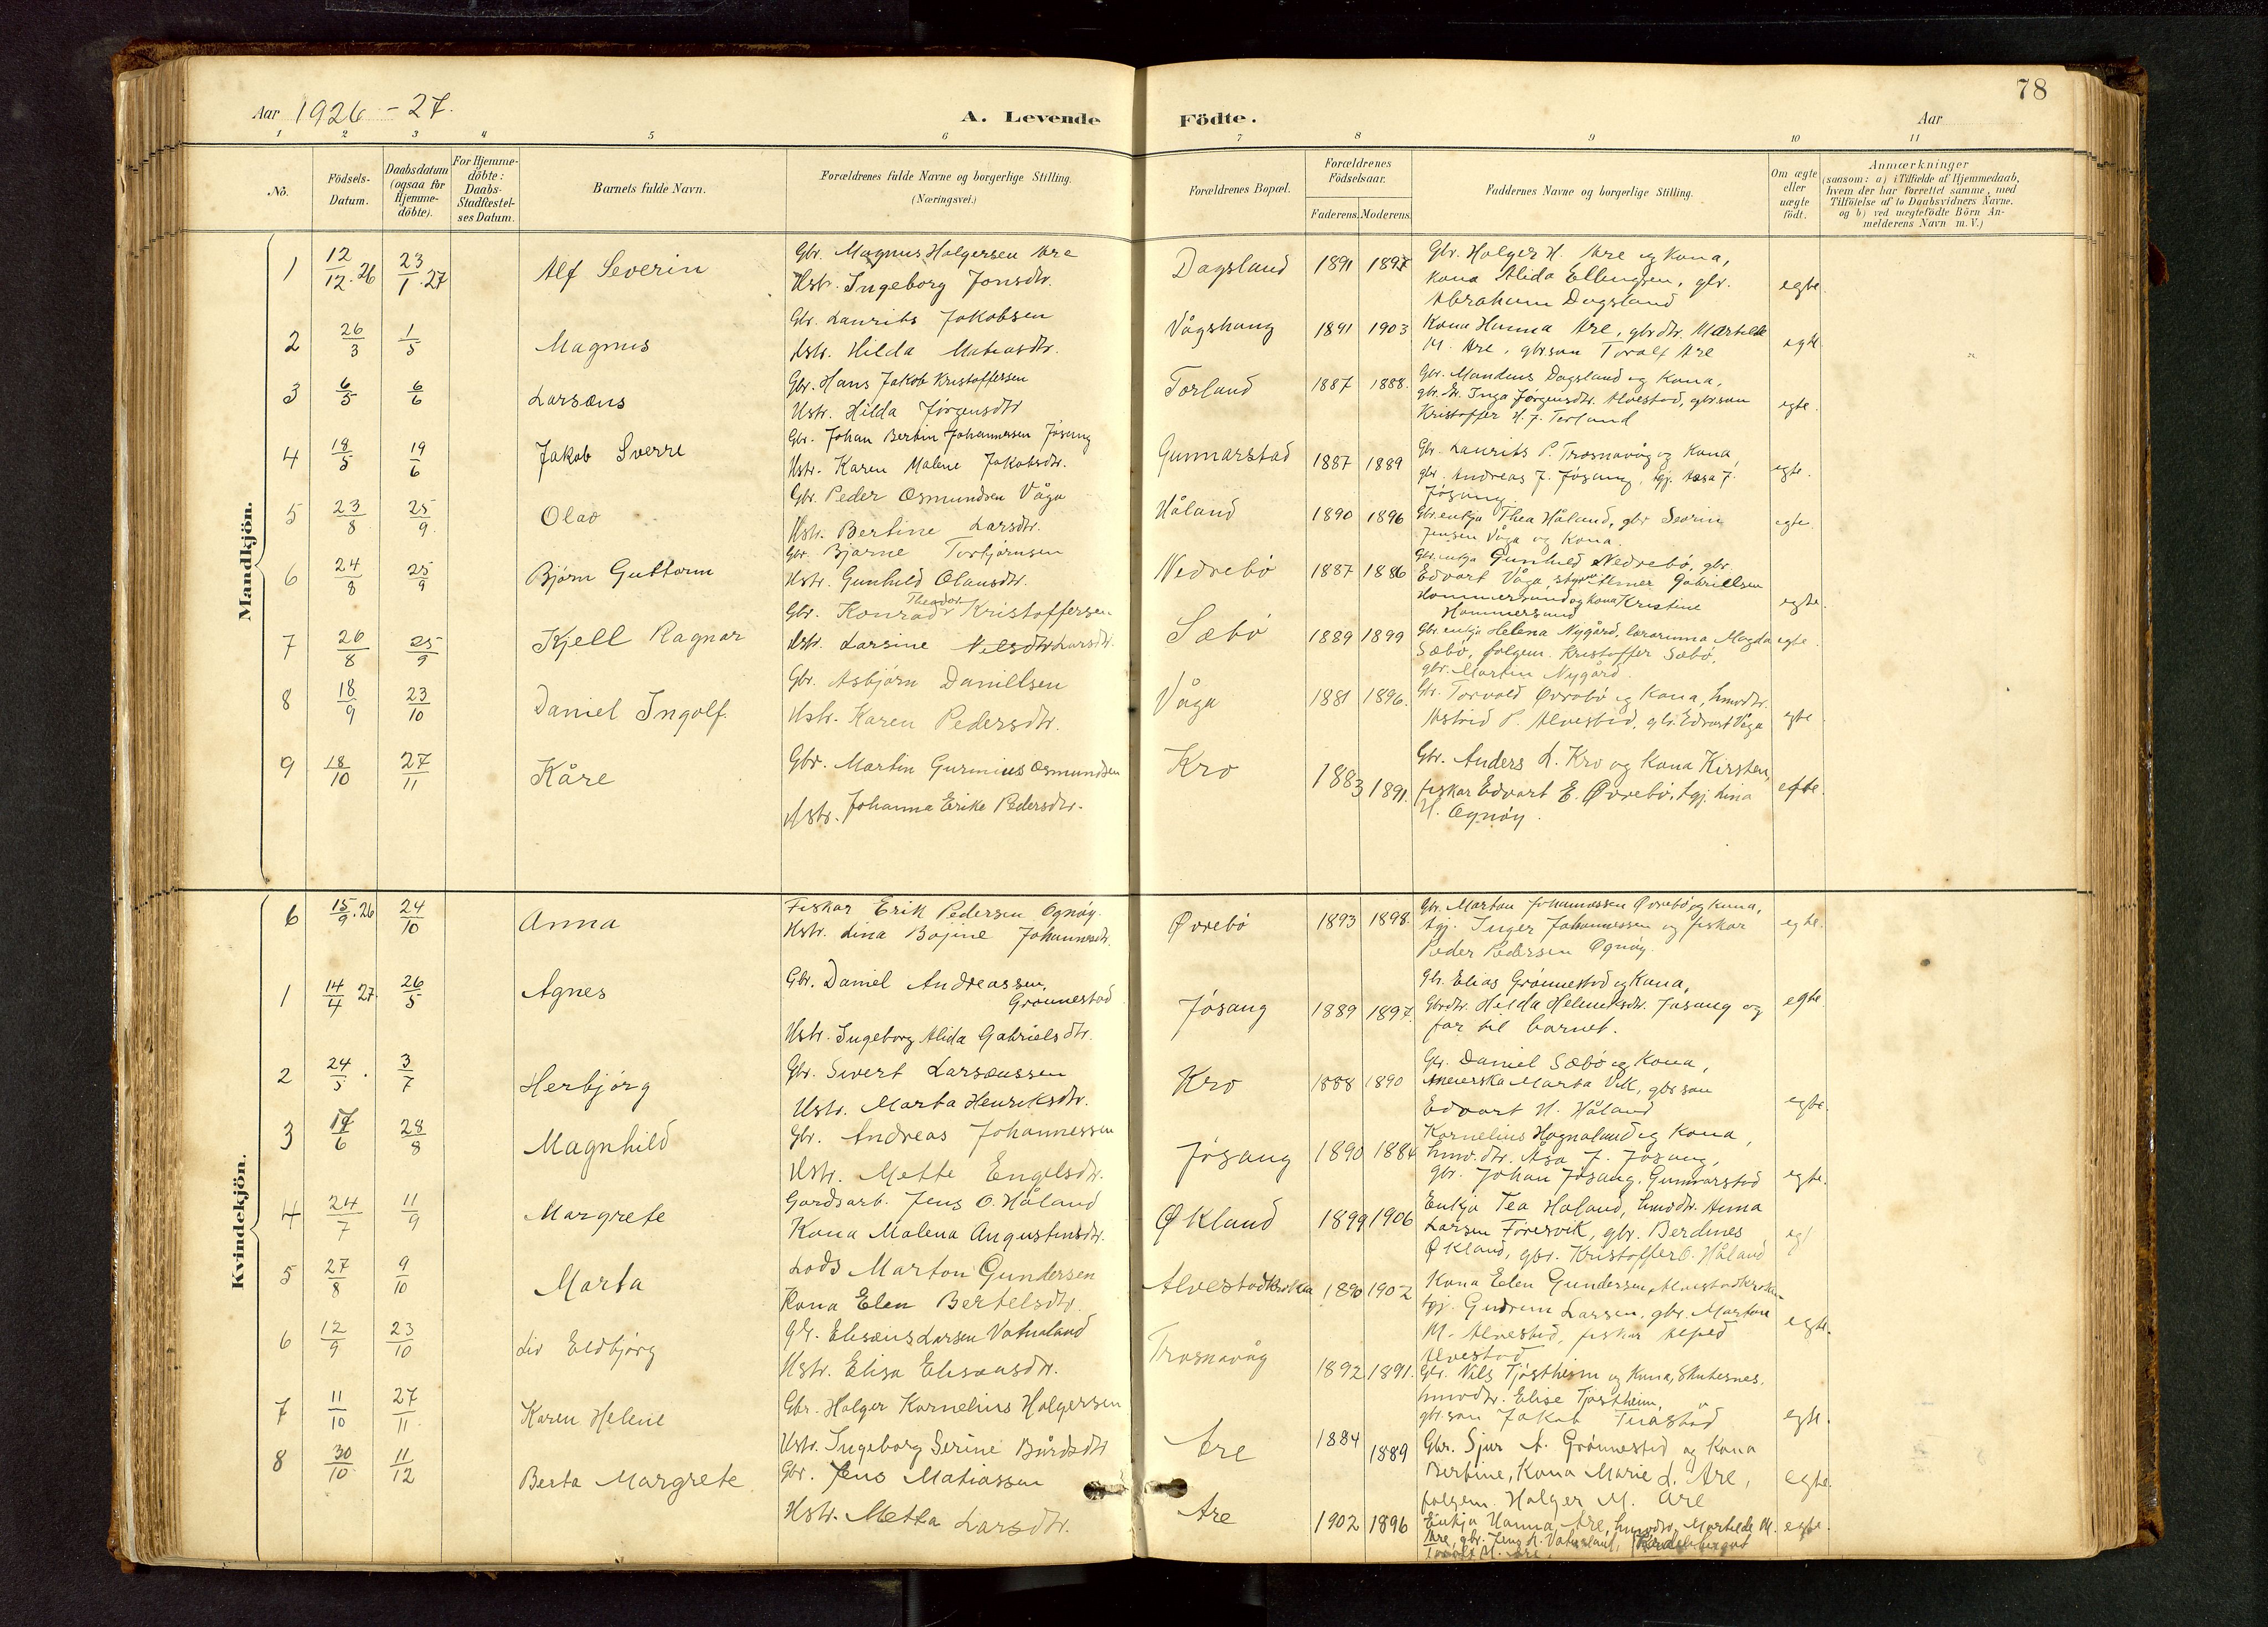 78
Aar 1926 - 27.
A. Levende Födte.
Aar
1 2 3 4 5 6 7 8 9 10 11
No.
Födsels-Datum.
Daabsdatum (ogsaa for Hjemme-döbte).
For Hjemme-döbte: Daabs-Stadfæstel-ses Datum.
Barnets fulde Navn.
Forældrenes fulde Navne og borgerlige Stilling.
(Næringsvei.)
Forældrenes Bopæl.
Forældrenes Födselsaar.
Faderens. Moderens.
Faddernes Navne og borgerlige Stilling.
Om ægte eller uægte födt.
Anmærkninger
(saasom: a) i Tilfælde af Hjemmedaab,
hvem der har forrettet samme, med
Tilföielse af to Daabsvidners Navne.
og b) ved uægtefödte Börn An-
melderens Navn m. V.)
Mandkjön.
1 12/12.26 23/1.27 Alf Severin Gbr. Magnus Holgersen Are
Hstr. Ingeborg Jonsdtr. Dagsland 1891 1897 Gbr. Holger H. Are og kona,
kona Alida Ellingsen, gbr.
Abraham Dagsland egte.
2 26/3 1/5 Magnus Gbr. Laurits Jakobsen
Hstr. Hilda Matiasdtr. Vågshaug 1891 1903 Kona Hanna Are, gbrdtr. Marthilde
M. Are, gbrson Toralf Are egte
3 6/5 6/6 Larsæus Gbr. Hans Jakob Kristoffersen
Hstr. Hilda Jørgensdtr Torland 1887 1888. Gbr. Mandius Dagsland og kona,
gbr.dtr. Inga Jørgensdtr. Alvestad, gbrson
Kristoffer H. J. Torland egte.
4 18/5 19/6 Jakob Sverre Gbr. Johan Bertin Johannessen Jøsang
Hstr. Karen Malene Jakobsdtr. Gunnarstad 1887 1889 Gbr. Laurits P. Trosnavåg og Kona,
gbr. Andreas J. Jøsang, tgj. Aasa J.
Jøsang. egte.
5 23/8 25/9 Olav Gbr. Peder Osmundsen Våga
Hstr. Bertine Larsdtr. Håland 1890 1896 Gbr.enkja Thea Håland, gbr Sevrin
Jensen Våga og Kona. egte.
6 24/8 25/9 Bjørn Guttorm Gbr. Bjarne Torbjørnsen
Hstr. Gunhild Olausdtr. Nedrebø 1887 1886 Gbr.enkja Gunhild Nedrebø, gbr.
Edvart Våga, Almer Gabrielsen
Hommersand og kona Kristine
Hommersand egte.
7 26/8 25/9 Kjell Ragnar Gbr. Konrad Theodor Kristoffersen
Hstr. Larsine Nilsdtr Larsdtr. Sæbø 1889 1899 Gbr.enkja Helena Nygård, lærarinna Magda
Sæbø, følgem. Kristoffer Sæbø,
gbr. Martin Nygård. egte.
8 18/9 23/10 Daniel Ingolf. Gbr. Asbjørn Daniellsen
Hstr. Karen Pedersdtr. Våga 1881 1896. Gbr. Torvald Øvrebø og Kona, hmvdtr.
Astrid P. Alvestad, gbr. Edvart Våga egte
9 18/10 27/11 Kåre Gbr. Martin Gurinius Osmundsen
Hstr. Johanna Erike Pedersdtr. Kro 1883 1891. Gbr. Anders L. Kro og Kona Kirsten,
fiskar Edvart E. Øvrebø, tgj. Lina
H. Ognøy. egte.
Kvindekjön.
6 15/9.26 24/10 Anna Fiskar Erik Pedersen Ognøy.
Hstr. Lina Bojine Johannesdtr. Øvrebø 1893 1898. Gbr. Marton Johannessen Øvrebø og kona,
tgj. Inger Johannessen og fiskar
Peder Pedersen Ognøy. egte.
1 14/4 27 26/5 Agnes Gbr. Daniel Andreassen,
Grønnestad
Hstr. Ingeborg Alida Gabrielsdtr. Jøsang 1889 1897. Gbr. Elias Grønnestad og Kona,
Gbrdtr. Hilda Helmiksdtr. Jøsang og
far til barnet. egte.
2 24/5. 3/7 Herbjørg Gbr. Sivert Larsæussen
Hstr. Marta Henriksdtr. Kro 1888 1890 Gbr. Daniel Sæbø og Kona,
Marta Vik, gbrson
Edvart H. Håland egte.
3 17/6 28/8 Magnhild Gbr. Andreas Johannessen
Hstr. Mette Engelsdtr. Jøsang 1890 1884 Kornelius Hognaland og Kona,
hmv.dtr. Åsa J. Jøsang,
gbr. Johan Jøsang, Gunnarstad egte.
4 24/7 11/9 Margrete Gardsarb. Jens O. Håland
Kona Malena Augustinsdtr. Økland 1899 1906 Enkja Tea Håland, hmvdtr. Anna
Larsen Førresvik, gbr. Berdines
Økland, gbr. Kristoffer O. Håland egt
5 27/8 9/10 Marta Lods Marton Gundersen
Kona Elen Bertelsdtr. Alvestadkroken 1890 1902 Kona Elen Gundersen, Alvestadkroken
tgj. Gudrun Larsen, gbr. Marton
M. Alvestad, fiskar Alfred
Alvestad egte.
6 12/9 23/10 Liv Eldbjørg Gbr. Elisæus Larsen Vatnaland
Hstr. Elisa Elisæusdtr. Trosnavåg 1892 1891. Gbr. Nils Tjøstheim og Kona, Skutesnes,
hmvdtr. Elise Tjøstheim,
gbr.son Jakob egte.
7 11/10 27/11. Karen Helene Gbr. Holger Kornelius Holgersen
Hstr. Ingeborg Serine Bårdsdtr Are 1884 1889 Gbr. Sjur A. Grønnestad og Kona
Bertine, Kona Marie L. Are,
følgem. Holger M. Are egte.
8 30/10 11/12 Berta Margrete Gbr. Jens Matiassen
Hstr. Metta Larsdtr. Are 1902 1896 Enkja Hanna Are, hmvdtr. Marthilde M.
Are, gbr. Jens A. Vatnaland,
Toralf M. Are. egte.